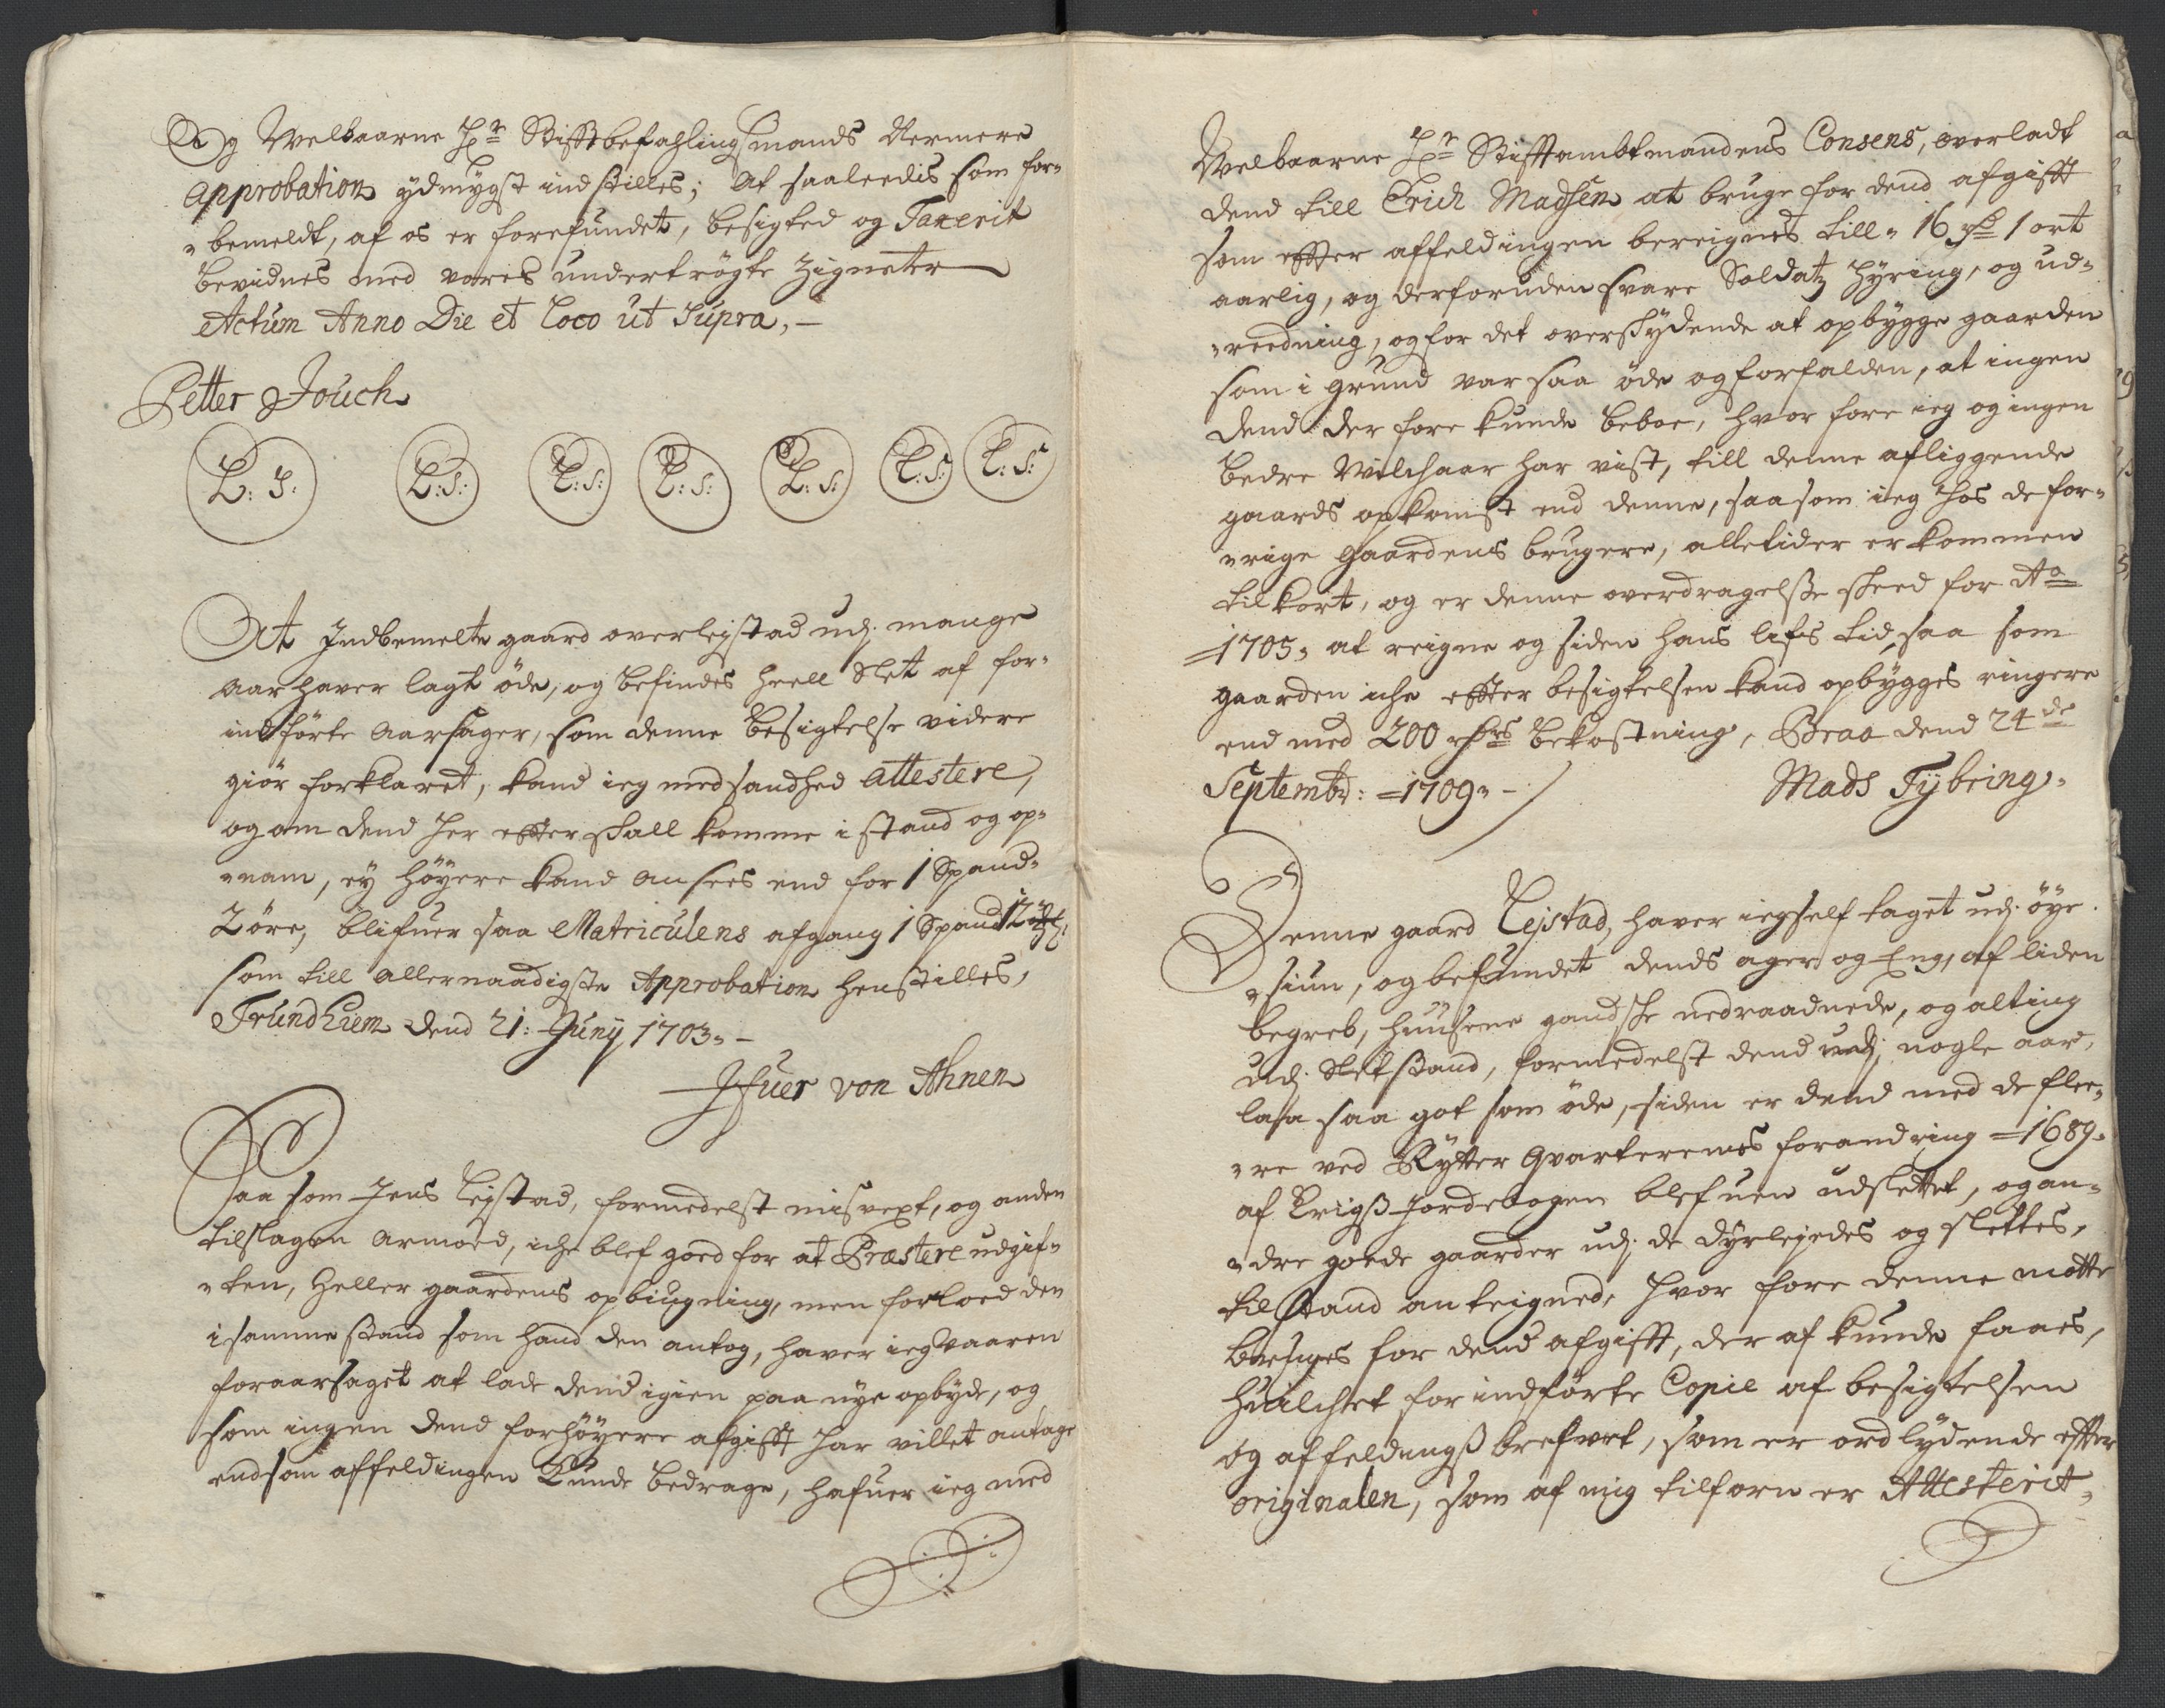 Og Welbaarne Hr Stifftbefahlingsmands Nermere
Approbation ydmygst indstilles; At saaledis som for-
"bemeldt, af os er forefundet, besigted og Taxerit
bevidnes med vores undertrögte Zigneter
Actum Anno Die et Loco ut Supra, -
Petter Jouch
L: S: L:S: L:S: L:S: L:S: L:S: L:S:
At Indbemelte gaard overlejstad udj mange
aar haver lagt öde, og befindes heell Slet af for-
indförte Aarsager, som denne besigtelse videre
giör forklaret, kand ieg med sandhed Attestere,
og om dend her effter skall komme i stand og op-
"nam, ey höyere kand ansees end for 1 Spand-
2 öre, blifuer saa Matriculens afgang 1 Spand 12
som till allernaadigste Approbation henstilles,
Trundhiem dend 21: Junij 1703,-
Ifuer von Ahnen
Saa som Jens Lejstad, formedelst misvext, og anden
tilslagen Armoed, iche blef goed for at Præstere udgif-
"ten, heller gaardens opbiugning, men forloed den
i samme stand som hand den antog, haver ieg vaaren
foraarsaget at lade dend igien paa nye opbyde, og
som ingen dend forhöyere afgifft har villet antage
end som affeldingen Kunde bedrage, hafuer ieg med
Welbaarne Hr Stifftambtmandens Consens, overladt
dend till Erich Madsen at bruge for dend afgifft
som effter affeldingen bereignes till" 16 rd 1 ort
aarlig, og derforuden svare Soldatz hyring, og ud-
"reedning, og for det overskydende at opbygge gaarden
som i grund var saa öde og forfalden, at ingen
dend der fore kunde beboe, hvor fore ieg og ingen
bedre Vilchaar har vist, till denne afliggende
gaards opkomst end denne, saasom ieg hos de for-
"rige gaardens brugere, alletider er kommen
til kort, og er denne overdragelsse skeed for Ao
=1705, at reigne og siden hans lifs tid, saa som
gaarden iche effter besigtelsen kand opbygges ringere
end med 200 rdrs bekostning, Braa dend 24de
Septembr: =1709"-
Mads Tybring.
Denne gaard Lejstad, haver ieg self taget udj öye
"siun, og befundet dends ager og Eng, af liden
begreb, huusene gandske nedraadnede, og alting
udj Slet stand, formedelst dend udj nogle aar,
laa saa got som öde, siden er dend med de flee-
"re ved Rytter Qvarterenes forandring =1689"
af Krigs Jordebogen blefuen udslettet, og an-
"dre goede gaarder udj de dyrlejedes og slettes,
til stand anteignede hvor fore denne motte
bruges for dend afgifft, der af kunde faaes,
huilchet for indförte Copie af besigtelsen
og affeldings brefvet, som er ordlydende effter
originalen, som af mig tilforn er Attesterit,